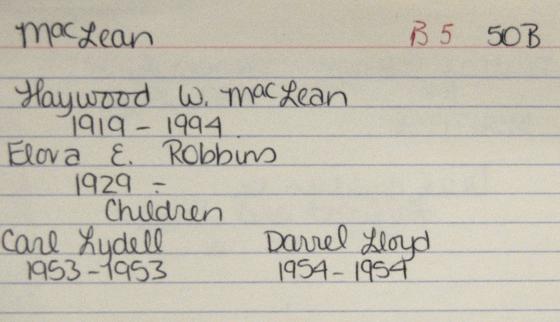 MacLean B 5 50B
Haywood W. MacLean
1919 - 1994
Elova E. Robbins
1929 -
Children
Carl Lydell Darrel Lloyd
1953-1953 1954-1954